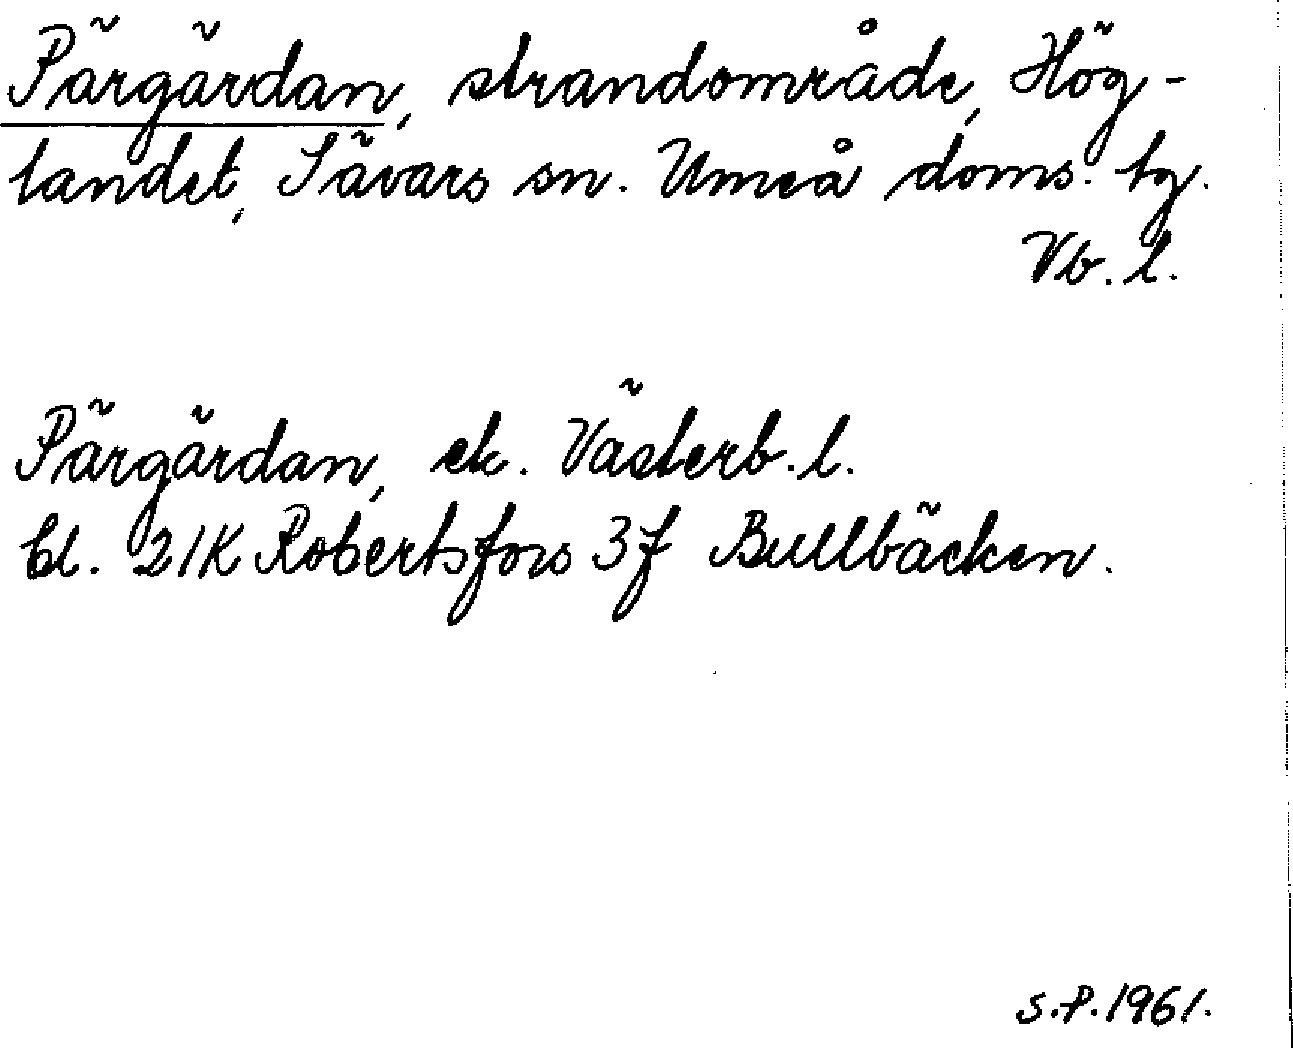 Pärgärdan, strandområde, Hög-
landet, Sävars sn. Umeå doms. tg.
Vb. l.
Pärgärdan, ek. Västerb. l.
bl. 21K Robertsfors 3f Bullbäcken.
S.P. 1961.